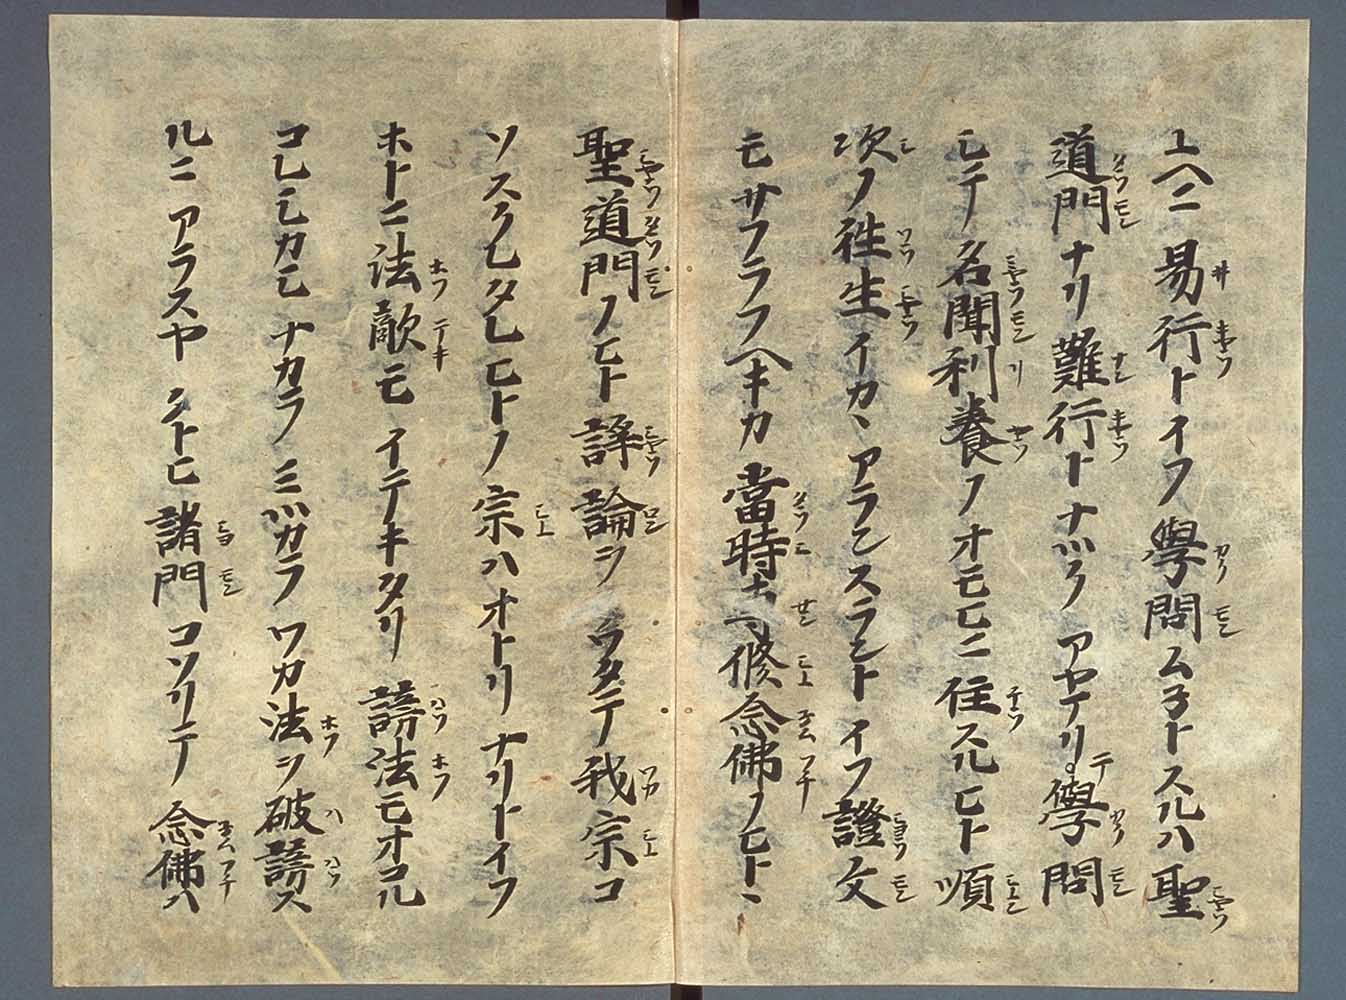 ユヘニ易行トイフ學問ムネトスルハ聖
道門ナリ難行トナツクアヤマリテ學問
シテ名聞利養ノオモヒニ住スルヒト順
次ノ往生イカヽアランスラントイフ證文
モサフラフヘキカ當時專修念佛ノヒトヽ
聖道門ノヒト諍論ヲクワタテテ我宗コ
ソスクレタレヒトノ宗ハオトリナリトイフ
ホトニ法敵モイテキタリ謗法モオコル
コレシカシナカラミツカラワカ法ヲ破謗ス
ルニアラスヤタトヒ諸門コソリテ念佛ハ